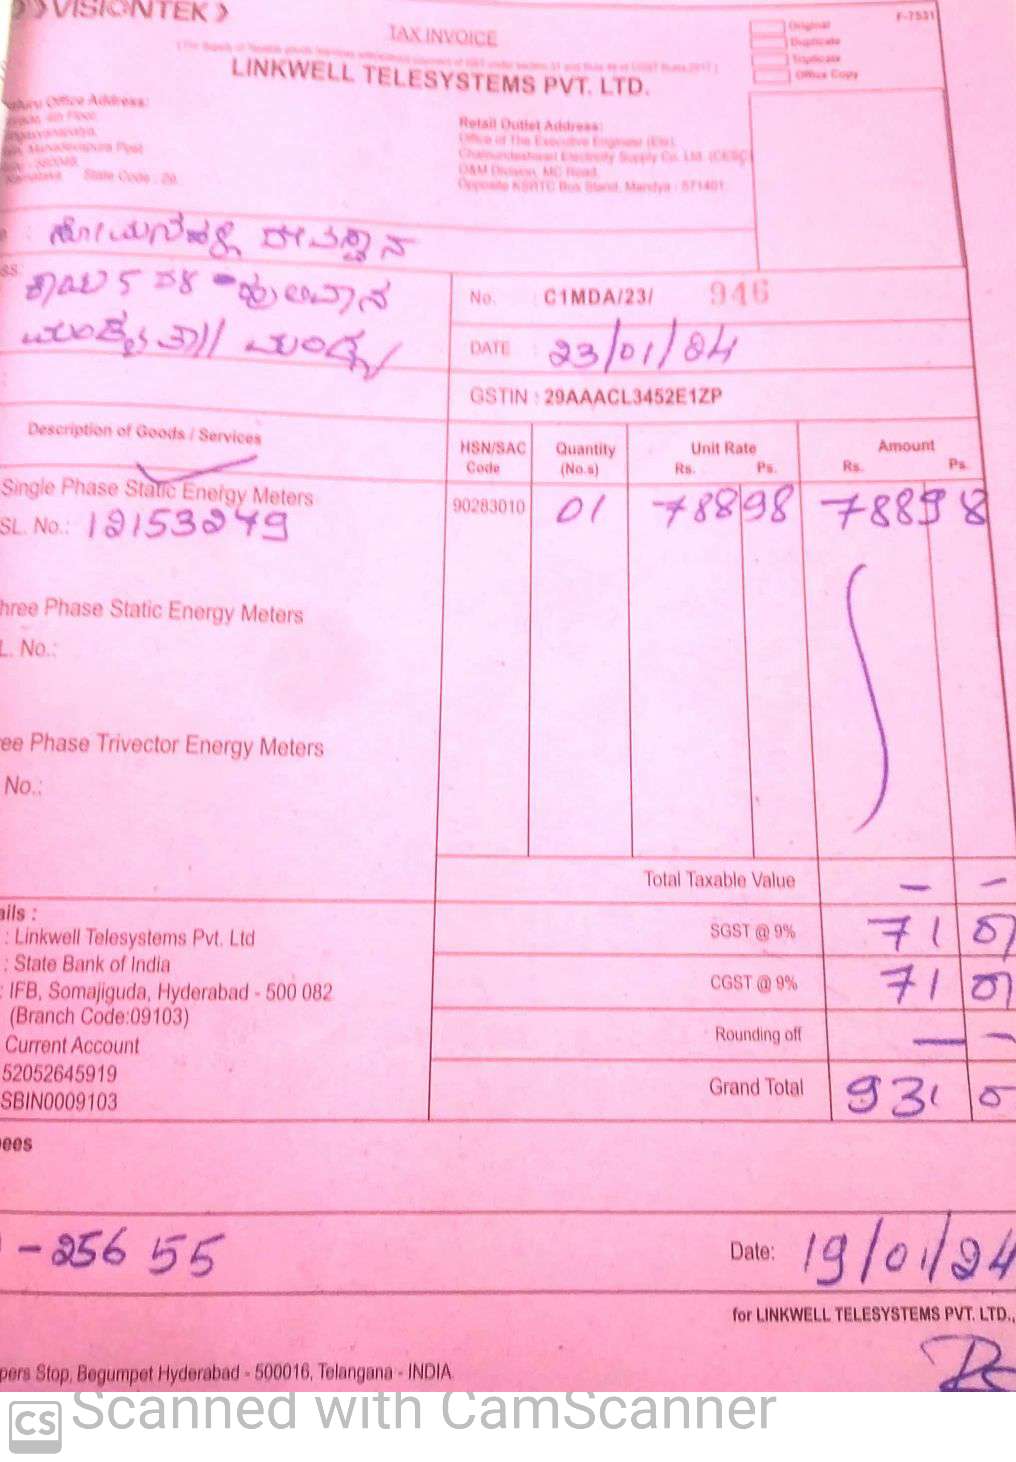 VISIONTEK
F-7531
TAX INVOICE
Original
Duplicate
Triplicate
Office Copy
LINKWELL TELESYSTEMS PVT. LTD.
Office Address:
4th Floor
Post
State Code : 29
Retail Outlet Address:
Office of The Executive Engineer (Ele),
Chamundeshwari Electricity Supply Co. Ltd. (CESC)
O&M Division, MC Road,
Opposite KSRTC Bus Stand, Mandya - 571401
ಸೋಮನಹಳ್ಳಿ ದೇವಸ್ಥಾನ
ಮಂಡ್ಯ ತಾ// ಮಂಡ್ಯ
No. : C1MDA/23/ 946
DATE : 23/01/24
GSTIN : 29AAACL3452E1ZP
Description of Goods / Services
HSN/SAC Code
Quantity (No.s)
Unit Rate Rs. Ps.
Amount Rs. Ps.
Single Phase Static Energy Meters 90283010 01 788 98 788 98
SL. No.: 12153249
hree Phase Static Energy Meters
L. No.:
ee Phase Trivector Energy Meters
No.:
Total Taxable Value — —
ails :
SGST @ 9% 71 01
: Linkwell Telesystems Pvt. Ltd
: State Bank of India
CGST @ 9% 71 01
: IFB, Somajiguda, Hyderabad - 500 082
(Branch Code:09103)
Rounding off — —
Current Account
52052645919
Grand Total 931 0
SBIN0009103
ees
- 256 55
Date: 19/01/24
for LINKWELL TELESYSTEMS PVT. LTD.,
pers Stop, Begumpet Hyderabad - 500016, Telangana - INDIA
CS Scanned with CamScanner